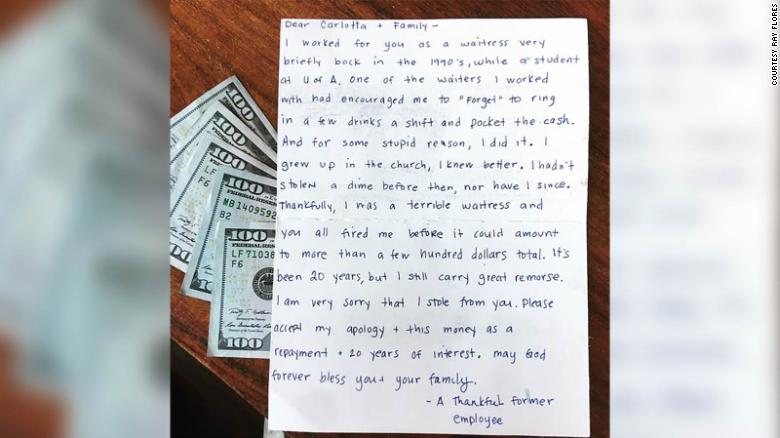 Dear Carlotta + Family -
I worked for you as a waitress very
briefly back in the 1990's, while a student
at U of A. One of the waiters I worked
with had encouraged me to "Forget" to ring
in a few drinks a shift and pocket the cash.
And for some stupid reason, I did it. I
grew up in the church, I knew better. I hadn't
stolen a dime before then, nor have I since.
Thankfully, I was a terrible waitress and
you all fired me before it could amount
to more than a few hundred dollars total. It's
been 20 years, but I still carry great remorse.
I am very sorry that I stole from you. Please
accept my apology + this money as a
repayment + 20 years of interest. may God
forever bless you + your family.
- A Thankful former
employee
100
100
100
LF
F6
100
FEDERAL RESERVE
MB 1409592
B2
100
FEDERAL RESERVE
LF 71038
F6
100
COURTESY RAY FLORES